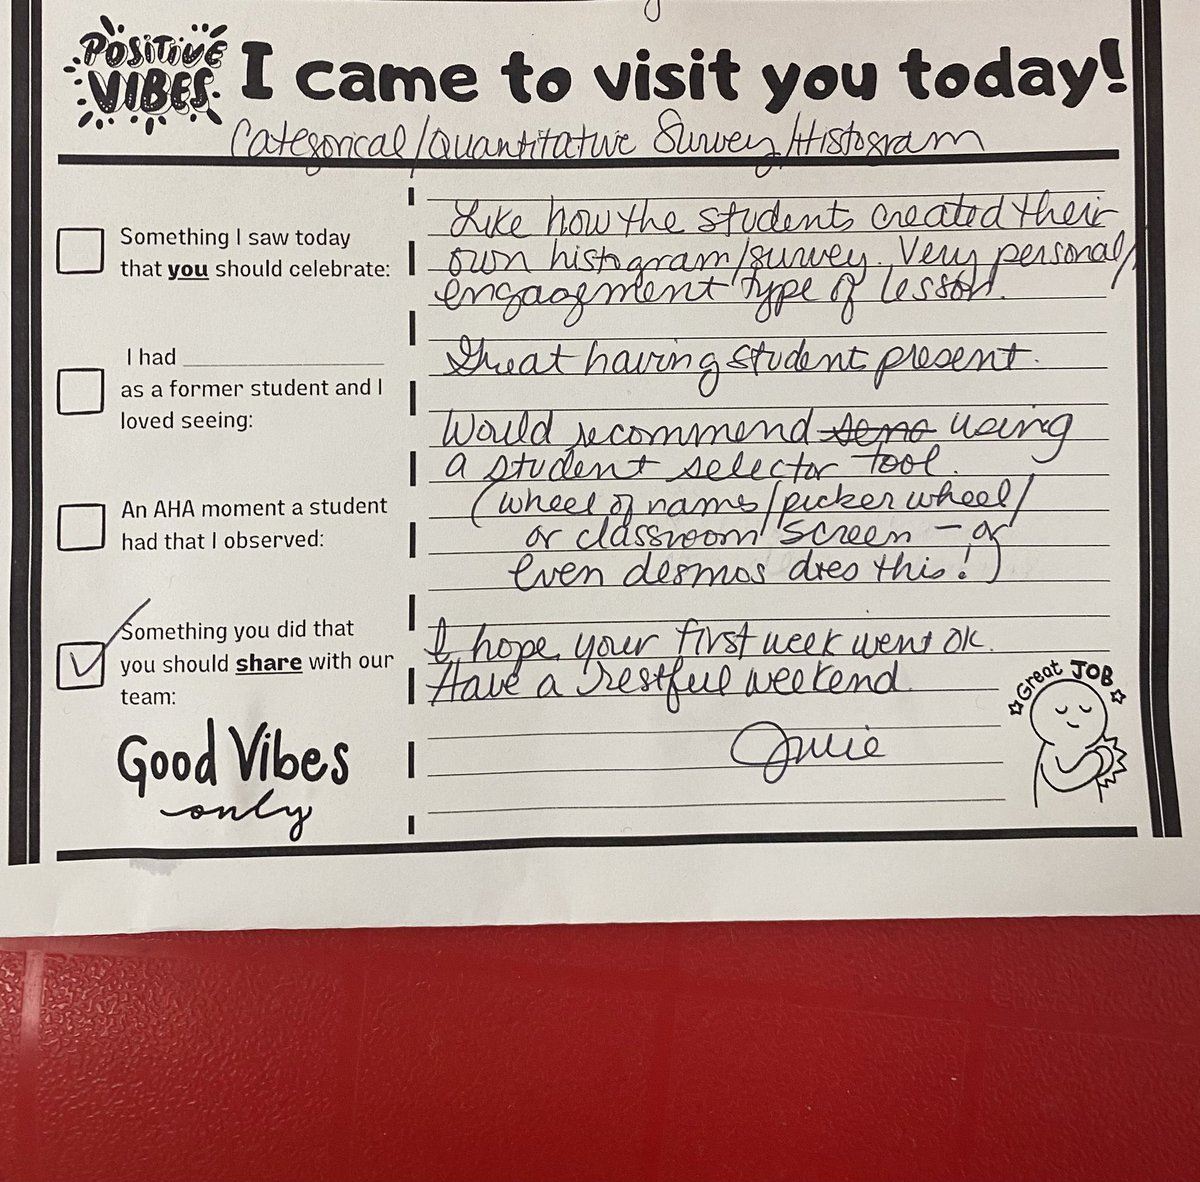 POSITIVE VIBES
I came to visit you today!
Categorical/Quantitative Survey/Histogram
Something I saw today
that you should celebrate:
I had
as a former student and I
loved seeing:
An AHA moment a student
had that I observed:
Something you did that
you should share with our
team:
Good Vibes
only
Like how the students created their
own histogram/survey. Very personal/
engagement type of lesson.
Great having student present.
Would recommend using
a student selector tool.
(wheel of names/picker wheel/
or classroom screen - or
even desmos does this!)
I hope your first week went ok.
Have a restful weekend.
Julie
Great JOB